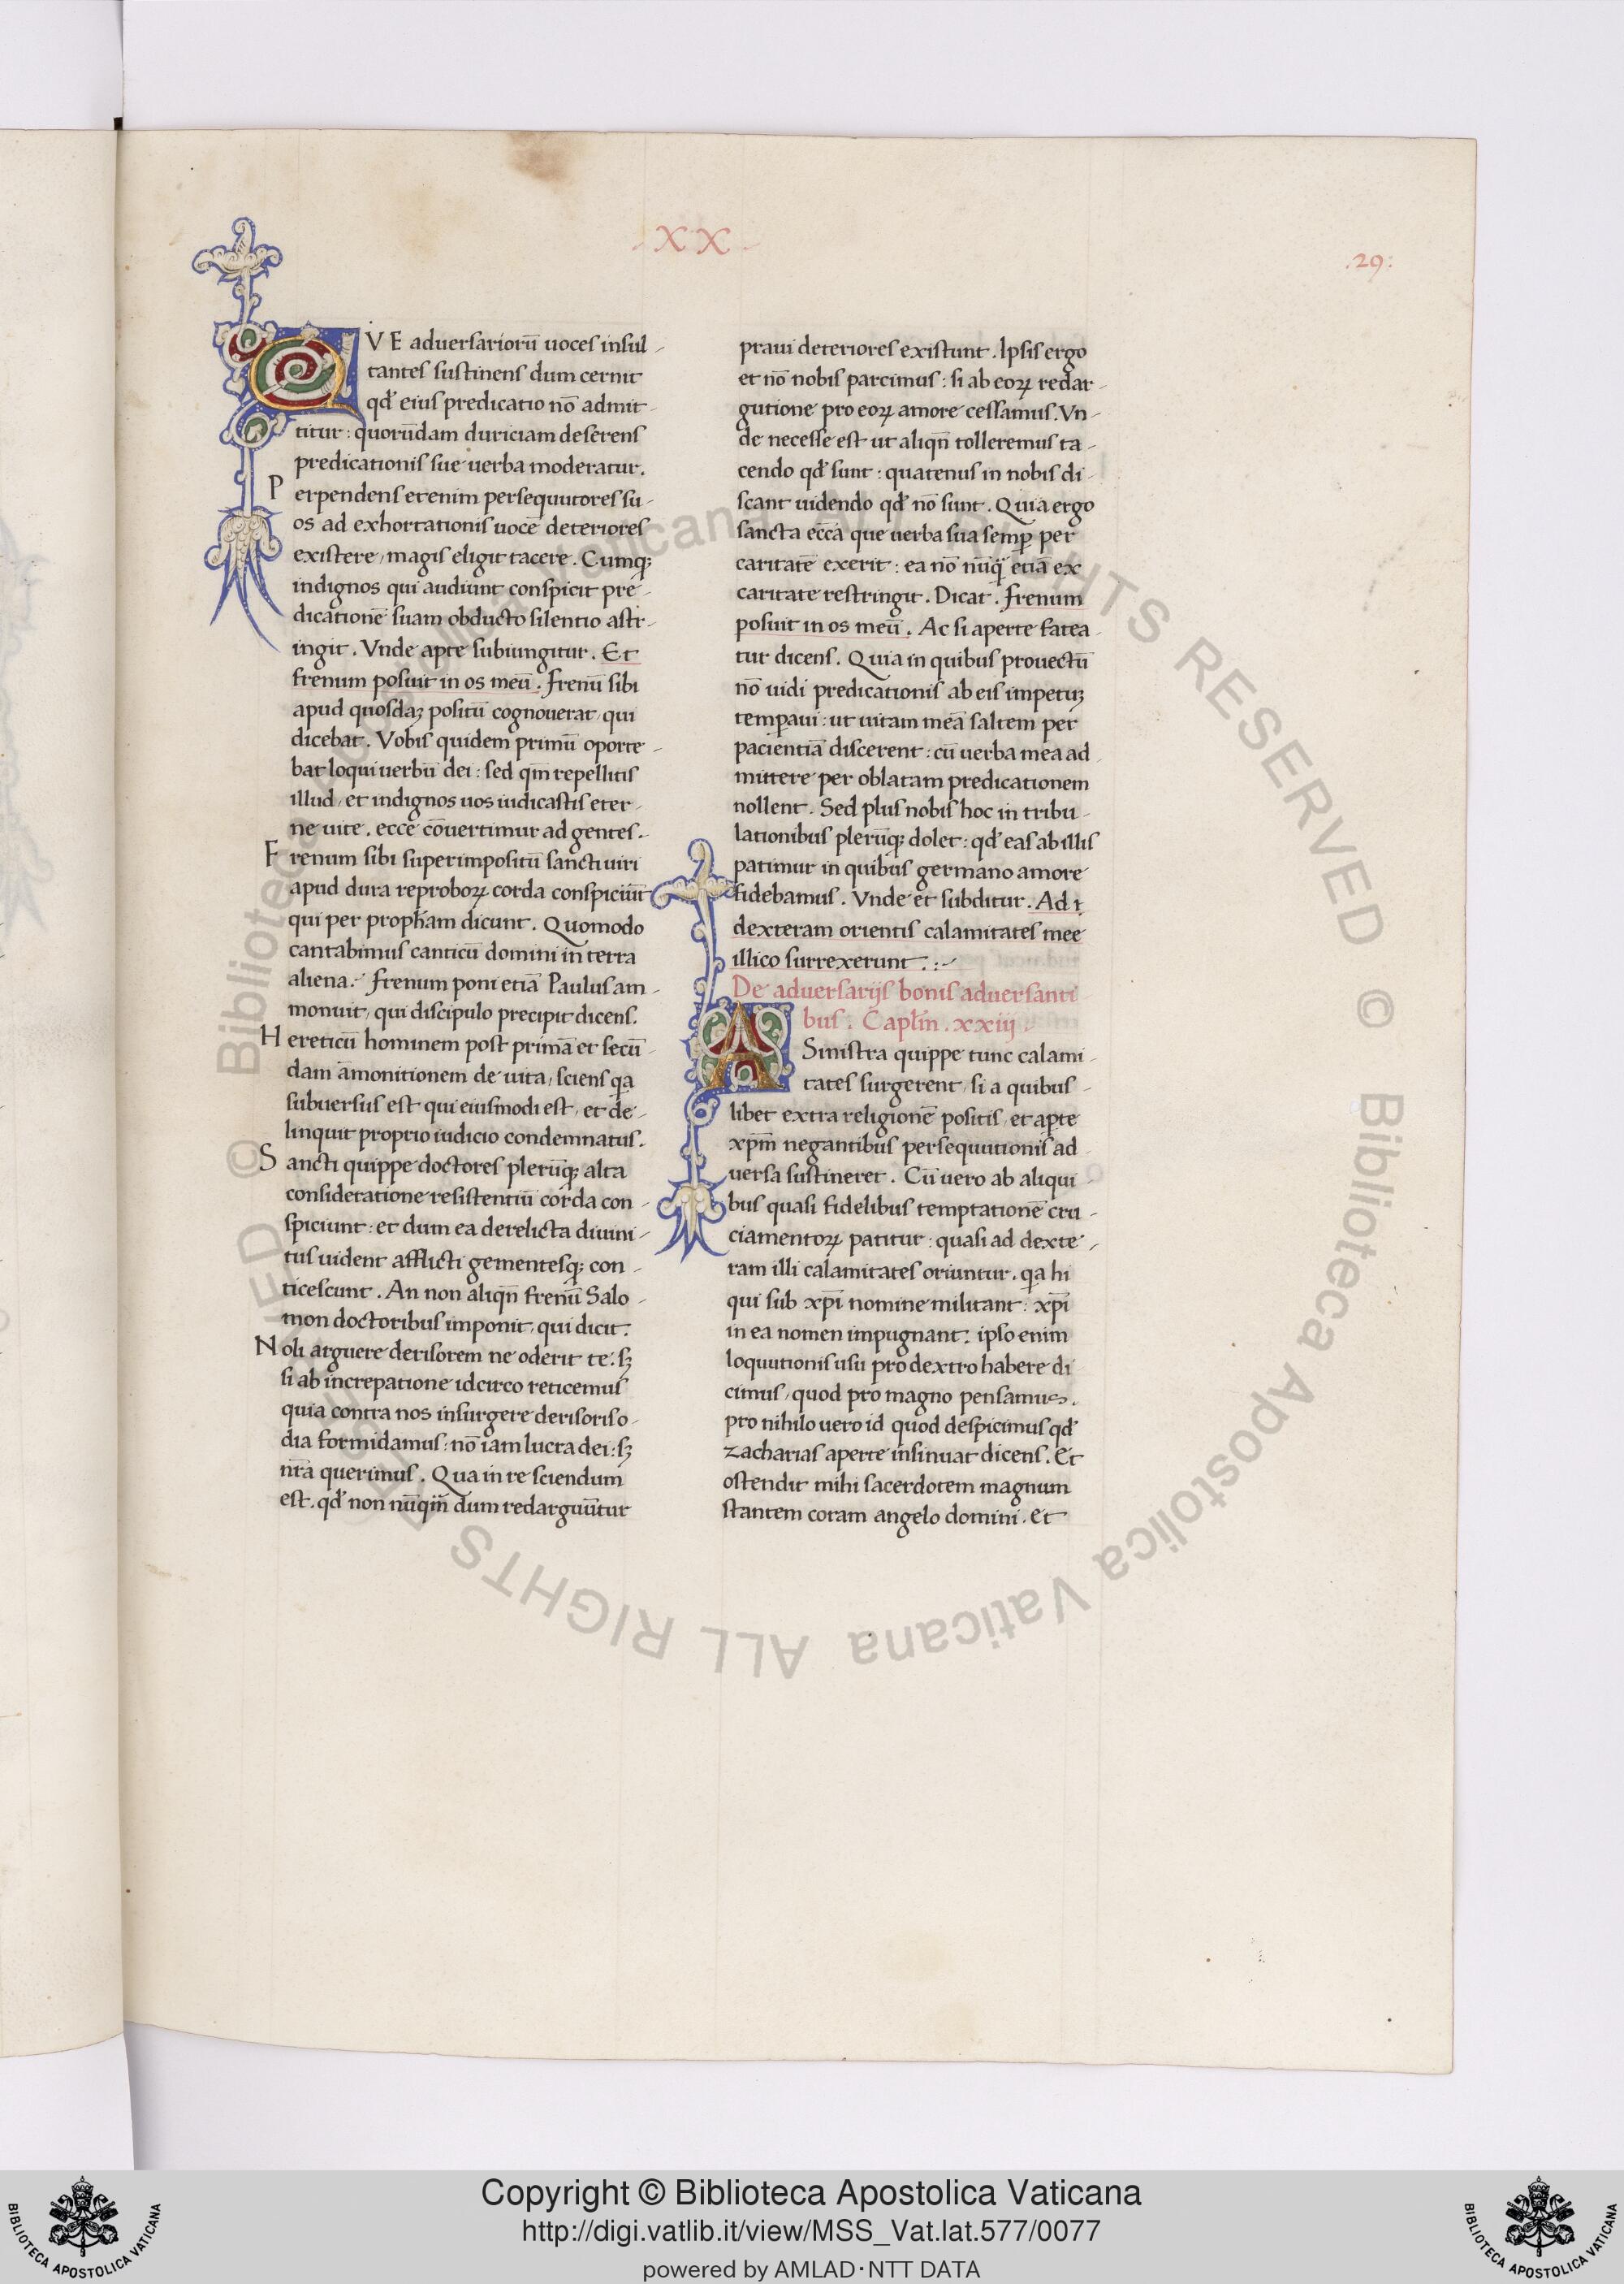 XX
.29:
QVE aduersariorū uoces insul-
tantes sustinens dum cernit
qđ eius predicatio nō admit-
titur: quorūdam duriciam deserens
predicationis sue uerba moderatur.
Perpendens etenim persequutores su-
os ad exhortationis uocē deteriores
existere, magis eligit tacere. Cumq;
indignos qui audiunt conspicit pre-
dicationē suam obducto silentio astr-
ingit. Vnde apte subiungitur. Et
frenum posuit in os meū. frenū sibi
apud quosdaꝫ positū cognouerat, qui
dicebat. Vobis quidem primū oporte-
bat loqui uerbū dei: sed qm̄ repellitis
illud, et indignos uos iudicastis eter-
ne uite. ecce cōuertimur ad gentes.
Frenum sibi superimpositū sancti uiri
apud dura reproboꝝ corda conspiciūt
qui per propħam dicunt. Quomodo
cantabimus canticū domini in terra
aliena. frenum poni etiā Paulus am-
monuit, qui discipulo precipit dicens.
Hereticū hominem post primā et secū-
dam āmonitionem deuita, sciens qa
subuersus est qui eiusmodi est, et de-
linquit proprio iudicio condemnatus.
Sancti quippe doctores plerūq; alta
consideratione resistentiū corda con-
spiciunt: et dum ea derelicta diuini-
tus uident afflicti gementesq; con-
ticescunt. An non aliqn̄ frenū Salo-
mon doctoribus imponit, qui dicit:
Noli arguere derisorem ne oderit te: sꝫ
si ab increpatione idcirco reticemus
quia contra nos insurgere derisoris o-
dia formidamus: nō iam lucra dei: sꝫ
nr̄a querimus. Qua in re sciendum
est. qđ non nūqm̄ dum redarguūtur
praui deteriores existunt. Ipsis ergo
et nō nobis parcimus: si ab eoꝝ redar-
gutione pro eoꝝ amore cessamus. Vn-
de necesse est ut aliqn̄ tolleremus ta-
cendo qđ sunt: quatenus in nobis di-
scant uidendo qđ nō sunt. Quia ergo
sancta ecc̄a que uerba sua semp̱ per
caritatē exerit: ea nō nūq̄ etiā ex
caritate restringit. Dicat. frenum
posuit in os meū. Ac si aperte fatea-
tur dicens. Quia in quibus prouectū
nō uidi predicationis ab eis impetuꝫ
temp̱aui: ut uitam meā saltem per
pacientiā discerent: cū uerba mea ad-
mittere per oblatam predicationem
nollent. Sed plus nobis hoc in tribu-
lationibus plerūq; dolet: qđ eas ab illis
patimur in quibus germano amore
fidebamus. Vnde et subditur. Ad
dexteram orientis calamitates mee
illico surrexerunt.:-
De aduersarijs bonis aduersanti
bus. Capl̄m. xxiij.
A Sinistra quippe tunc calami-
tates surgerent, si a quibus-
libet extra religionē positis, et ap̱te
xp̄m negantibus persequutionis ad-
uersa sustineret. Cū uero ab aliqui-
bus quasi fidelibus temptationē cru-
ciamentoꝝ patitur: quasi ad dexte-
ram illi calamitates oriuntur. qa hi
qui sub xp̄i nomine militant: xp̄i
in ea nomen impugnant: ipso enim
loquutionis usu pro dextro habere di
cimus, quod pro magno pensamus.
pro nihilo uero id quod despicimus qđ
zacharias aperte insinuat dicens. Et
ostendit mihi sacerdotem magnum
stantem coram angelo domini. et
© Biblioteca Apostolica Vaticana ALL RIGHTS RESERVED © Biblioteca Apostolica Vaticana ALL RIGHTS RESERVED
Copyright © Biblioteca Apostolica Vaticana
http://digi.vatlib.it/view/MSS_Vat.lat.577/0077
powered by AMLAD·NTT DATA
BIBLIOTECA APOSTOLICA VATICANA
BIBLIOTECA APOSTOLICA VATICANA